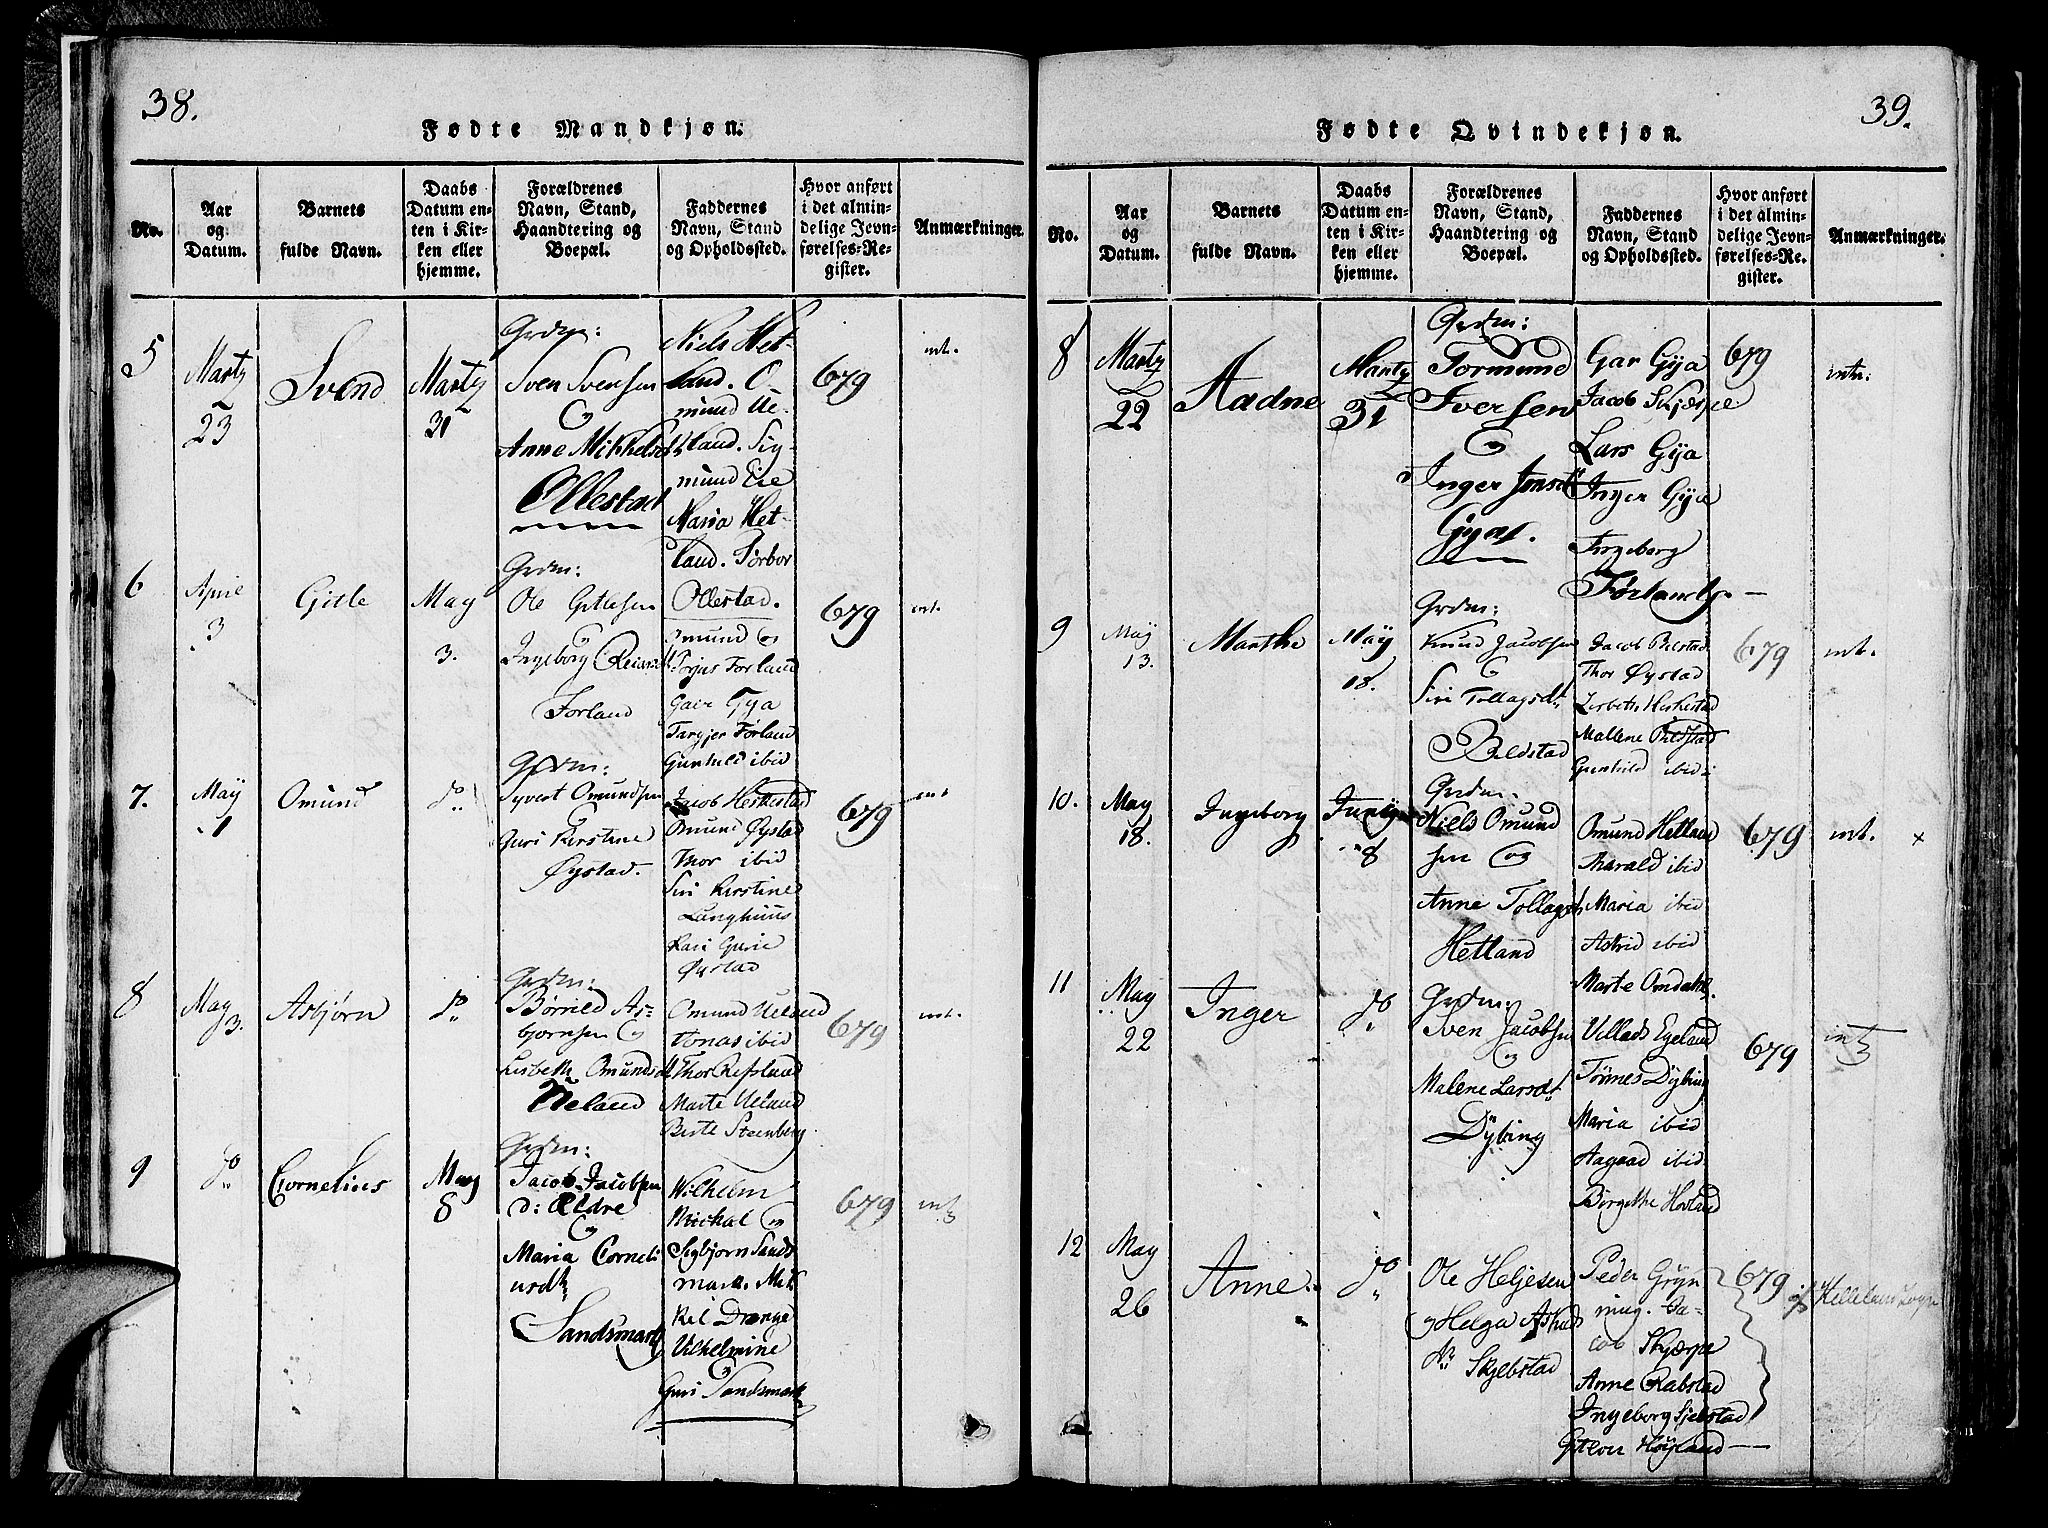 38.
Fødte Mandkjøn.
No.
Aar
og
Datum.
Barnets
fulde Navn.
Daabs
Datum en-
ten i Kir-
ken eller
hjemme.
Forældrenes
Navn, Stand,
Haandtering og
Boepæl.
Faddernes
Navn, Stand
og Opholdssted.
Hvor anført
i det almin-
delige Jevn-
førelses-Re-
gister.
Anmærkninger.
5
Martz
23
Svend
Martz
31
Grdm:
Sven Svensen
Anne Mikkelsd
Ollestad
Niels Het-
land. O-
mund Ue-
land. Sig-
mund Eie
Maria Het-
land. Torbor
Ollestad.
679
int.
6
3
Gitle
May
3.
Grdm:
Ole Gitlesen
Ingeborg
Forland
Omund og
Torjus Forland
Gair Gya
Targjer Førland
Gunhild ibid
679
int.
7.
May
1
Omund
do
Grdm:
Syvert Omundsen
Guri Kirstine
Øystad.
Jacob Heskestad
Omund Øystad
Thor ibid
Siri Kirstine
Langhuus
Kari Gurie
Øystad
679
int
8
May
3.
Asbjørn
do
Grdm:
Børrild As-
bjornsen og
Lisbeth Omundsd
Ueland
Omund Ueland
Jonas ibid
Thor Refsland
Marte Ueland
Berte Steenberg.
679
int.
9
do
Cornelius
May
8
Grdm:
Jacob Jacobsen
d: Ældre
og
Maria Corneli
usdtr
Sandsmark
Wilhelm
Michal og
Sigbjørn Sands
mark. Mik
kel Drange
Vilhelmine
Guri Sandsmark
679
int
39.
Fødte Qvindekjøn.
No.
Aar
og
Datum.
Barnets
fulde Navn.
Daabs
Datum en-
ten i Kir-
ken eller
hjemme.
Forældrenes
Navn, Stand,
Haandtering og
Boepæl.
Faddernes
Navn, Stand
og Opholdssted.
Hvor anført
i det almin-
delige Jevn-
førelses-Re-
gister.
Anmærkninger.
8
Martz
22
Aadne
Martz
31
Grdm:
Tormund
Iversen
og
Inger Jonsd
Gyas.
Gar Gya
Jacob Skjærpe
Lars Gya
Inger Gya
Ingeborg
Førlands.
679
intr.
9
May
13.
Marthe
May
18.
Grdm:
Knud Jacobsen
Siri Tollagsdr
Bildstad
Jacob Bilstad
Thor Øystad
Lisbeth Heskestad
Mallene Bildstad
Gunhild ibid:
679
int.
10.
May
18.
Ingeborg
Juny
8
Grdm:
Niels Omund
sen og
Anne Tollagsd
Hetland
Omund Hetland
Harald ibid
Maria ibid
Astrid ibid
Marte Omdahl.
679
int.
x
11
May
22
Inger
do
Grdm:
Sven Jacobsen
og
Malene Larsdr
Dybing
Villads Egeland
Tønnes Dybing
Maria ibid
Aagaad ibid
Birgithe Hovland
679
int
12
May
26
Anne
do
Ole Heljesen
og Helga Aslaks
dr Skjebstad
Peder Gryn
ning. Ja-
cob Skjærpe
Anne Rabstad
Ingeborg Sjebstad
Høyland
679